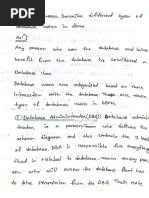 Describe different type of
database users in dbms.
Any person who uses the database and takes
benefit from the database is considered a
Database User.
Database users are categorized based on their
interaction with the database. These are many
types of database users in DBMS.
① Database Administrator (DBA): Database adminis-
trator is a person/team who defines the
schema diagram and also controls the levels
of database. DBA is responsible for everything
that is related to database means every per-
son who will access the database first has
to take permission from the DBA. Their role